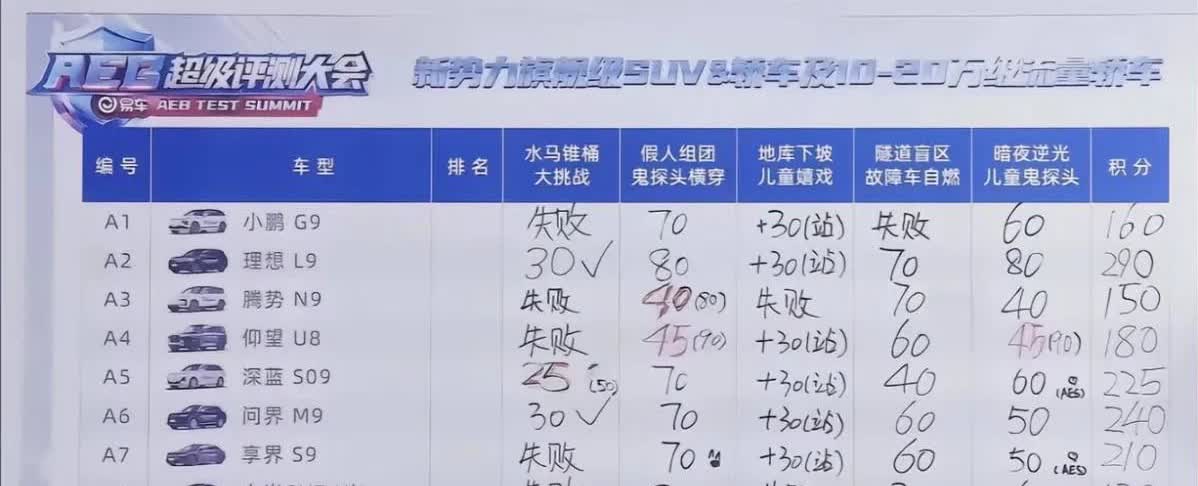 AEB 超级评测大会
易车 AEB TEST SUMMIT
新势力旗舰级SUV&轿车及10-20万级流量轿车
编号 车型 排名 水马锥桶大挑战 假人组团鬼探头横穿 地库下坡儿童嬉戏 隧道盲区故障车自燃 暗夜逆光儿童鬼探头 积分
A1 小鹏 G9 失败 70 +30(站) 失败 60 160
A2 理想 L9 30✓ 80 +30(站) 70 80 290
A3 腾势 N9 失败 40(80) 失败 70 40 150
A4 仰望 U8 失败 45(90) +30(站) 60 45(90) 180
A5 深蓝 S09 25(50) 70 +30(站) 40 60(AES) 225
A6 问界 M9 30✓ 70 +30(站) 60 50 240
A7 享界 S9 失败 70 +30(站) 60 50(AES) 210